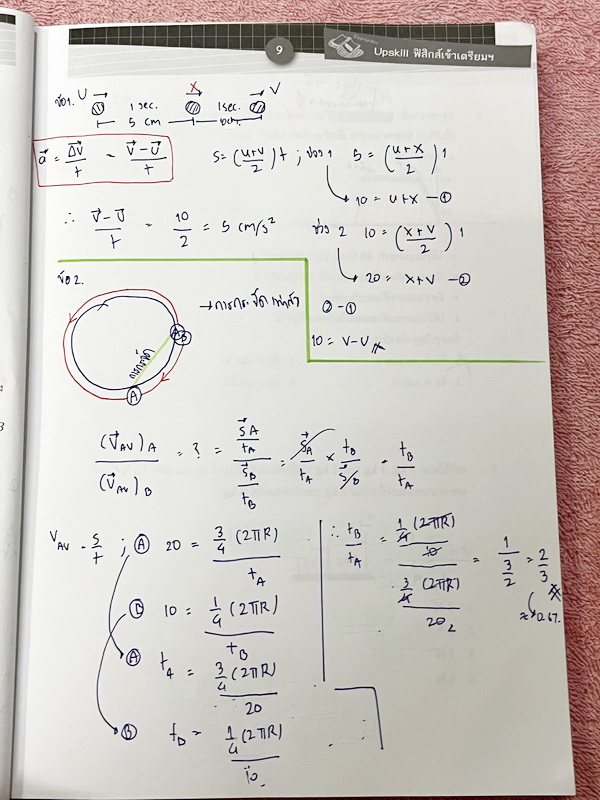 9
Upskill ฟิสิกส์เข้าเตรียมฯ
ข้อ1. U x V
1 sec. 1 sec.
5 cm
a⃗ = Δv⃗/t = (v⃗ - u⃗)/t
S = ((u+v)/2)t ; ช่วง 1 5 = ((u+x)/2)1
10 = u+x - ①
∴ (v⃗ - u⃗)/t = 10/2 = 5 cm/s²
ช่วง 2 10 = ((x+v)/2)1
20 = x+v - ②
② - ①
10 = v-u
ข้อ 2.
→ การกระจัดเท่ากัน
A B
การกระจัด
A
(V⃗AV)A/(V⃗AV)B = ? = (S⃗A/tA)/(S⃗B/tB) = S⃗A/tA × tB/S⃗B = tB/tA
VAV = s/t ; Ⓐ 20 = (3/4 (2πR))/tA
Ⓑ 10 = (1/4 (2πR))/tB
Ⓐ tA = (3/4 (2πR))/20
Ⓑ tB = (1/4 (2πR))/10
∴ tB/tA = (1/4 (2πR)/10)/(3/4 (2πR)/20 2) = 1/(3/2) = 2/3
≈ 0.67.